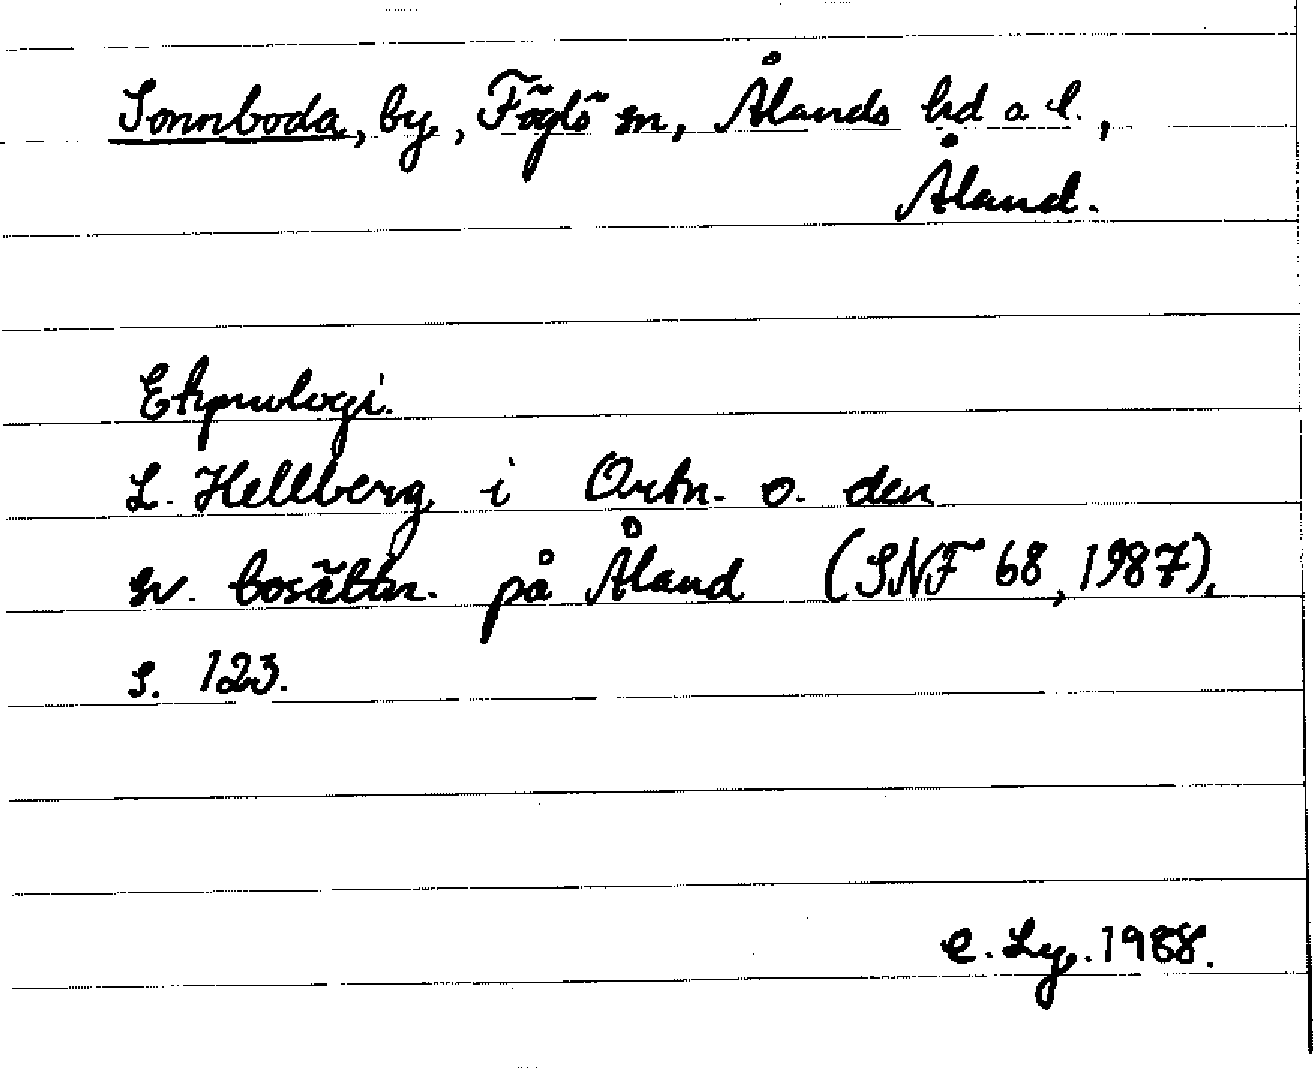 Sonnboda, by, Föglö sn, Ålands hd o l.,
Åland.
Etymologi.
L. Hellberg i Ortn. o. den
sv. bosättn. på Åland (SNF 68, 1987),
s. 123.
e. Ly. 1988.